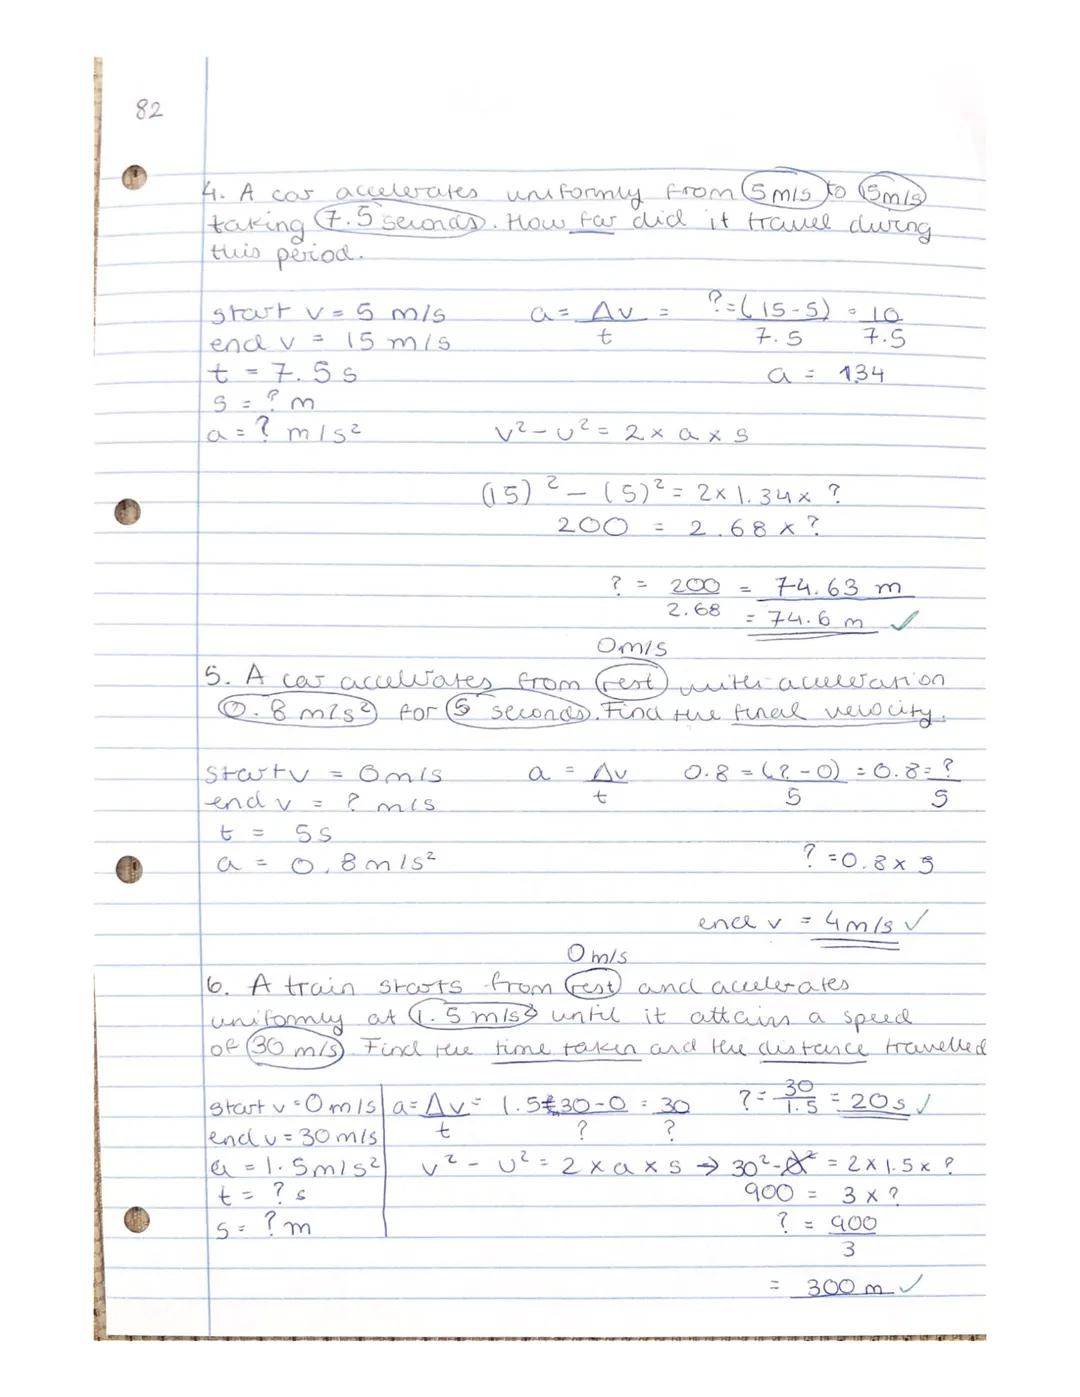 82
4. A car accelerates uniformly from 5 m/s to 15m/s
taking 7.5 seconds. How far did it travel during
this period.
start v = 5 m/s
end v = 15 m/s
t = 7.5 s
s = ? m
a = ? m/s²
a = Δv/t = ?=(15-5)/7.5 = 10/7.5
a = 1.34
v² - u² = 2 x a x s
(15)² - (5)² = 2 x 1.34 x ?
200 = 2.68 x ?
? = 200/2.68 = 74.63 m
= 74.6 m ✓
0m/s
5. A car accelerates from rest with acceleration
0.8 m/s² for 5 seconds. Find the final velocity.
start v = 0m/s
end v = ? m/s
t = 5s
a = 0.8m/s²
a = Δv/t 0.8 = (?-0)/5 = 0.8 = ?/5
? = 0.8 x 5
end v = 4m/s ✓
0 m/s
6. A train starts from rest and accelerates
uniformly at 1.5 m/s² until it attains a speed
of 30 m/s. Find the time taken and the distance travelled
start v = 0 m/s
end v = 30 m/s
a = 1.5m/s²
t = ? s
s = ? m
a = Δv/t = 1.5 = 30-0/? = 30/? ? = 30/1.5 = 20s ✓
v² - u² = 2 x a x s → 30² - 0² = 2 x 1.5 x ?
900 = 3 x ?
? = 900/3
= 300 m ✓